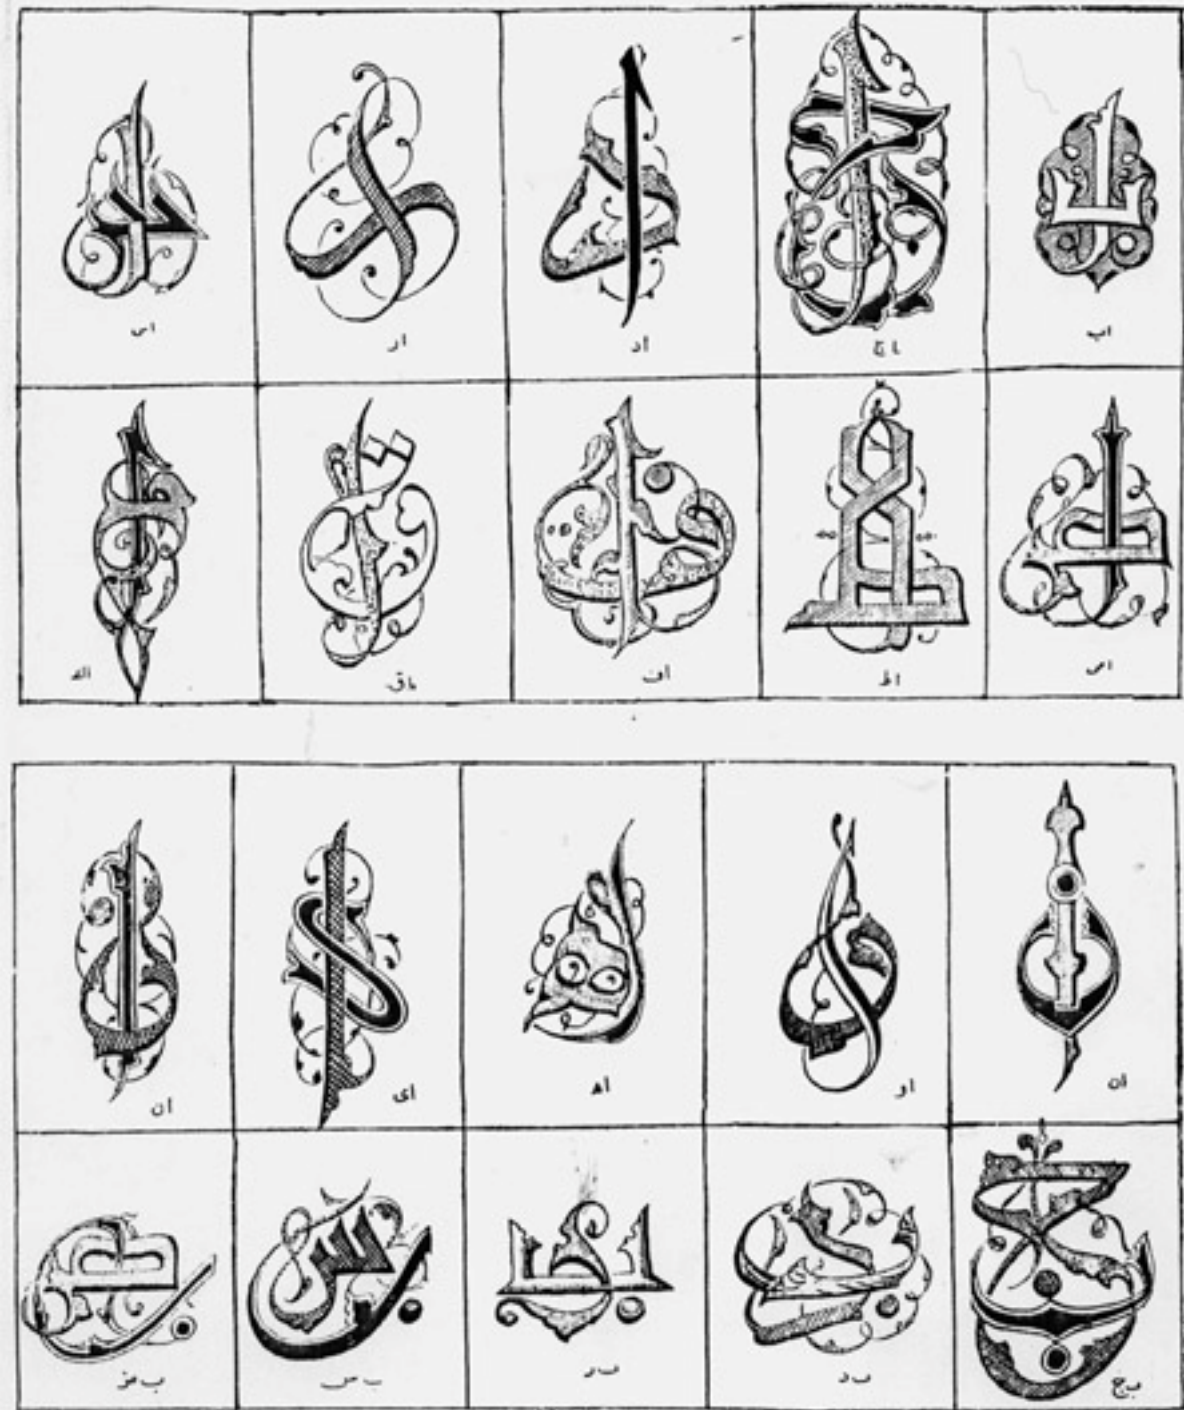 اب اج اد ار اس
اص اط اف اق الد
ان او اه ای ان
ب ج ب د ب ر ب س ب ض